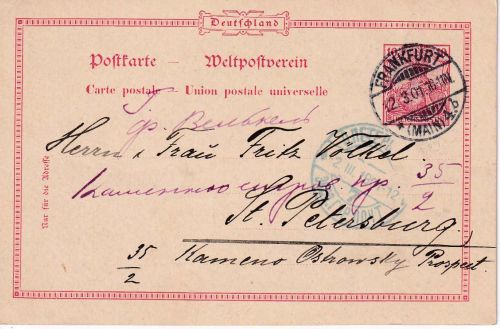 Deutschland
Postkarte – Weltpostverein
Carte postale – Union postale universelle
FRANKFURT
2.3.01
* (MAIN) 4.b
Г.
фр. Велькель
Herrn & Frau Fritz Völkel.
Каменноостров. пр. 35/2
St. Petersburg,
35/2 Kameno Ostrowsky Prospect.
Nur für die Adresse